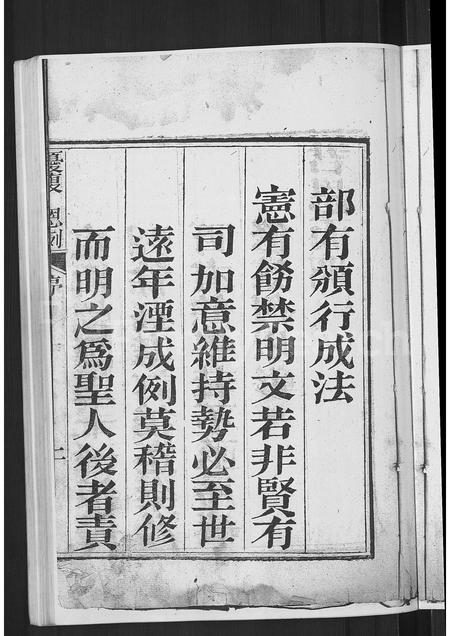 部有頒行成法
憲有餝禁明文若非賢有
司加意維持勢必至世
遠年湮成例莫稽則修
而明之爲聖人後者責